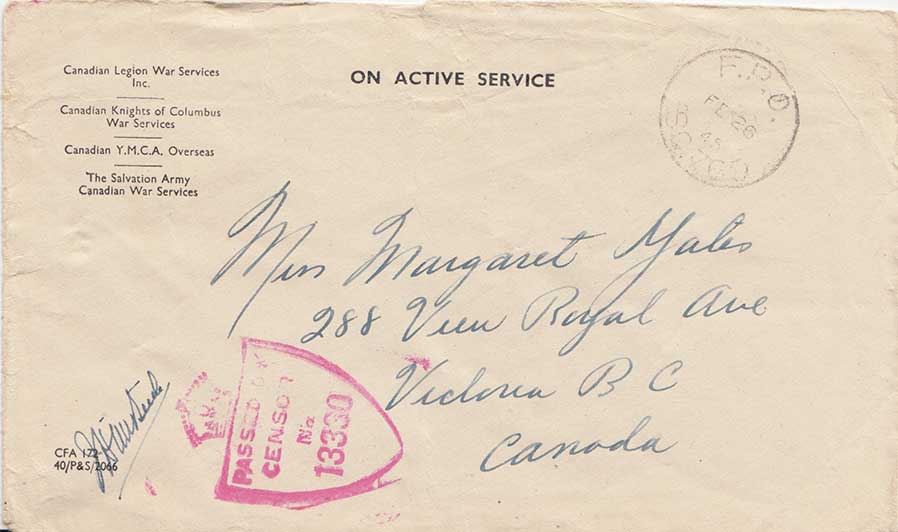 Canadian Legion War Services
Inc.
Canadian Knights of Columbus
War Services
Canadian Y.M.C.A. Overseas
The Salvation Army
Canadian War Services
ON ACTIVE SERVICE
F.P.O.
FE 26
45
Miss Margaret Yates
288 View Royal Ave
Victoria B C
Canada
PASSED BY
CENSOR
No
13330
CFA 172
40/P&S/2066